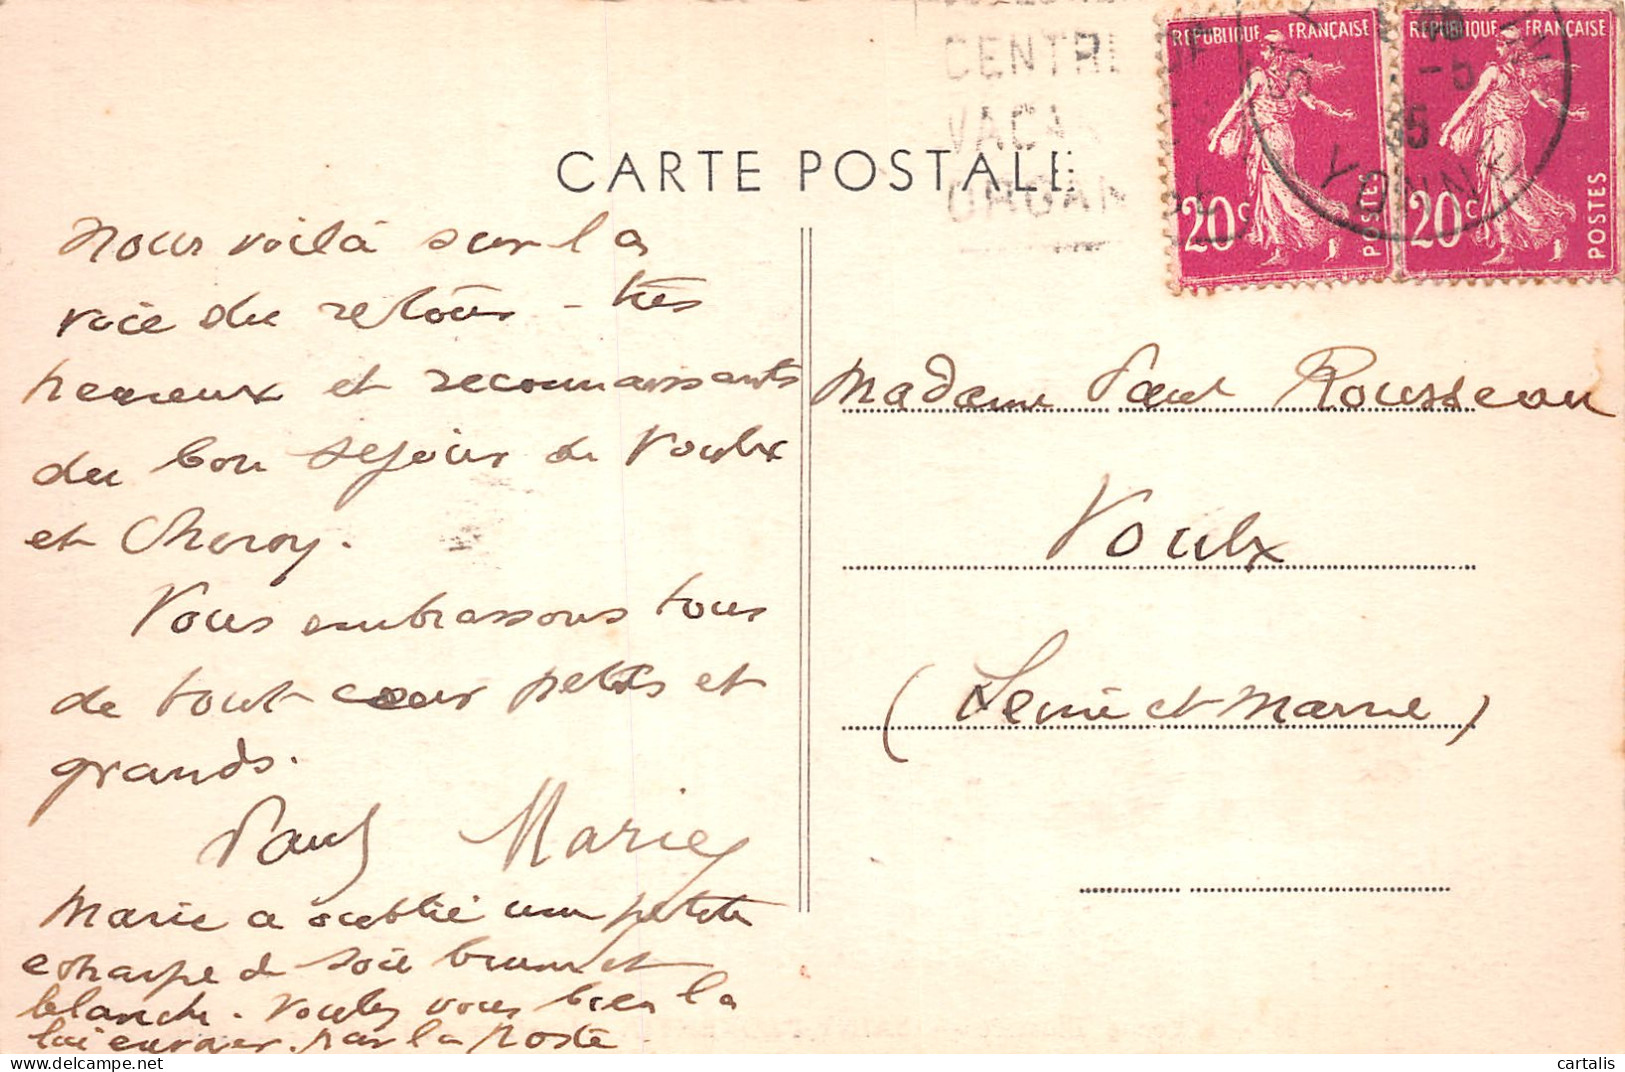 CENTRE
VACAN
ORGAN
REPUBLIQUE FRANÇAISE
20c
POSTES
REPUBLIQUE FRANÇAISE
20c
POSTES
-5
35
YONNE
CARTE POSTALE
nous voilà sur la
voie du retour - très
heureux et reconnaissants
du bon séjour de Voulx
et Cheroy.
Vous embrassons tous
de tout cœur petits et
grands.
Paul Marie
Marie a oublié une petite
echarpe de soie brune et
blanche. Voulez vous bien la
lui envoyer par la poste.
Madame Paul Rousseau
Voulx
(Seine et Marne)
cartalis